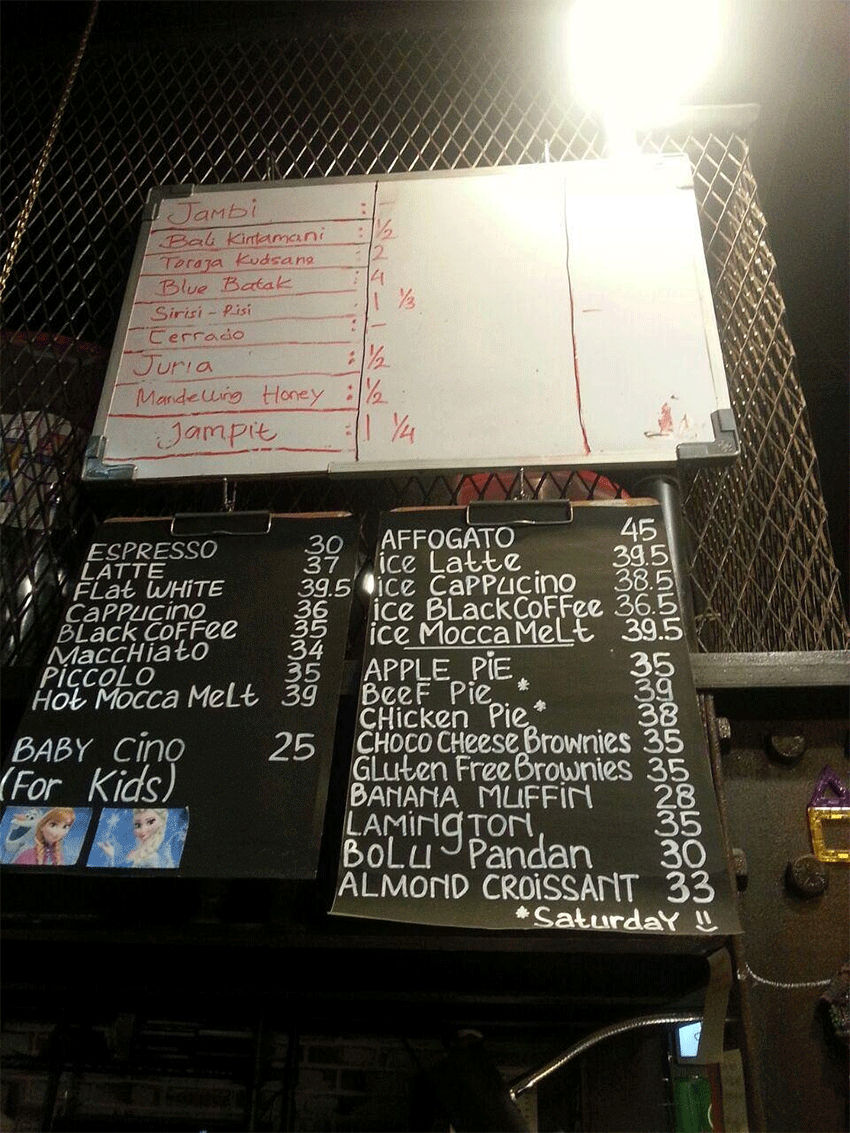 Jambi : -
Bali Kintamani : 1/2
Toraja Kudsana : 2
Blue Batak : 4
Sirisi - Risi : 1 1/3
Cerrado : -
Juria : 1/2
Mandelling Honey : 1/2
Jampit : 1 1/4
ESPRESSO 30
LATTE 37
FLat WHITE 39.5
CaPPUcino 36
BLack COFFee 35
MaccHiato 34
PiccoLo 35
Hot Mocca MeLt 39
BABY Cino 25
(For Kids)
AFFOGATO 45
ice Latte 39.5
ice CaPPUcino 38.5
ice BLack CoFFee 36.5
ice Mocca MeLt 39.5
APPLE PiE 35
BeeF Pie * 39
CHicken Pie * 38
CHOCO CHeese Brownies 35
GLuten Free Brownies 35
BANANA MUFFiN 28
LAMiNgTON 35
BoLU Pandan 30
ALMOND CROiSSANT 33
*SaturdaY !!